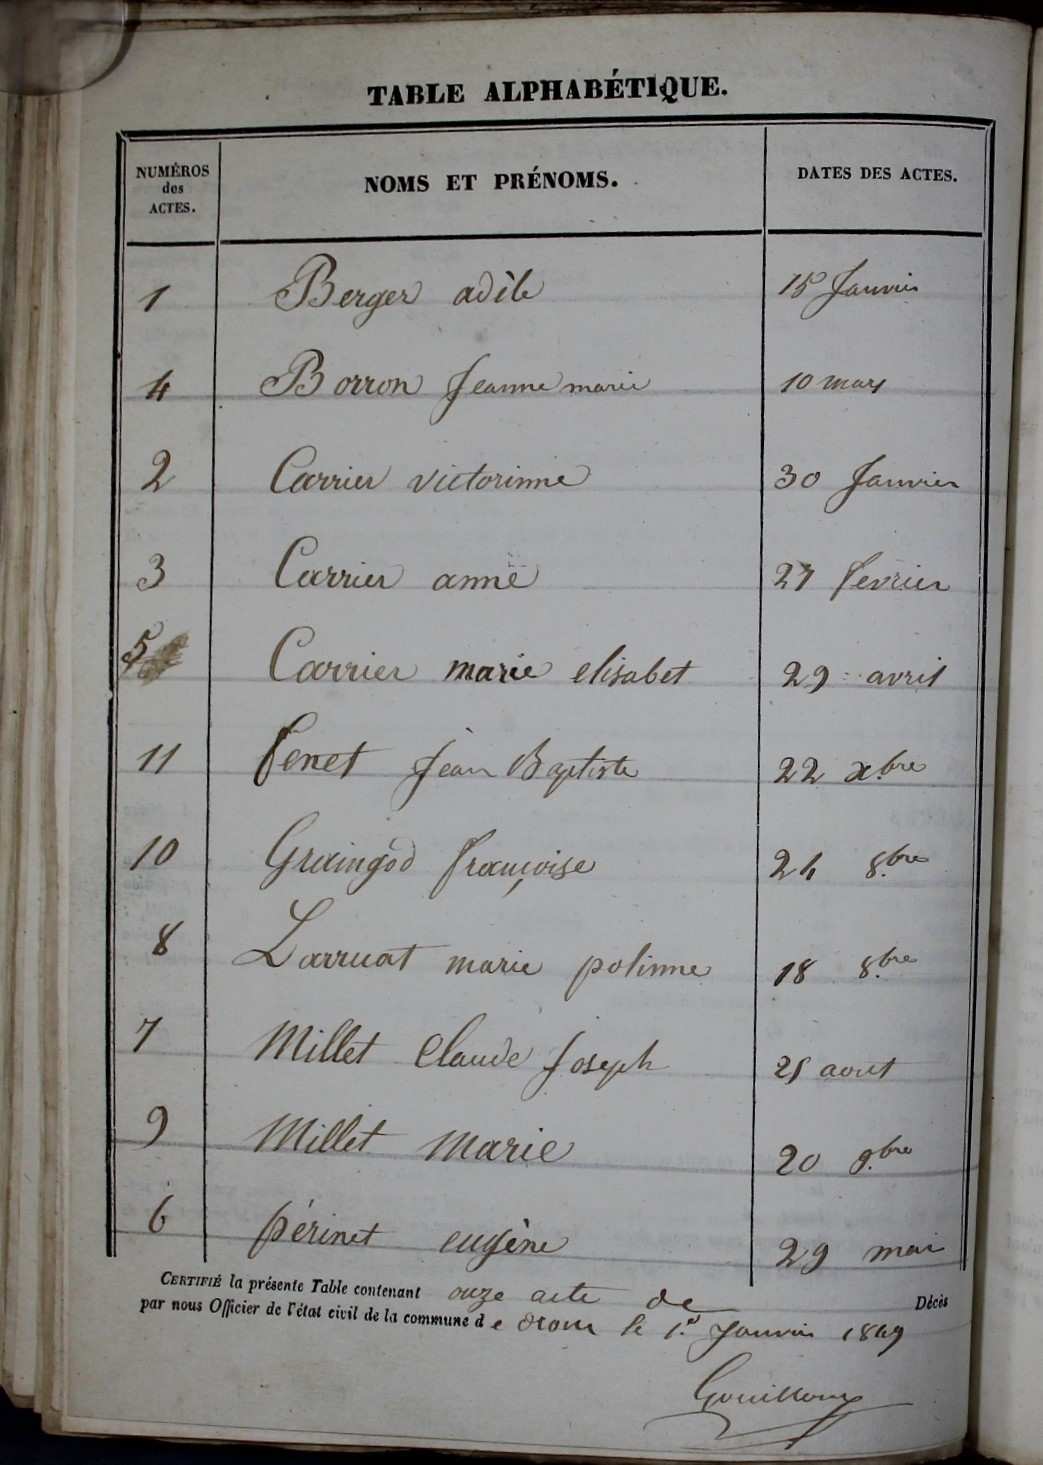 TABLE ALPHABÉTIQUE.
NUMÉROS des ACTES. NOMS ET PRÉNOMS. DATES DES ACTES.
1 Berger adèle 15 Janvier
4 Borron Jeanne marie 10 mars
2 Carrier victorinne 30 Janvier
3 Carrier anne 27 fevrier
5 Carrier marie elisabet 29 avril
11 fenet Jean Baptiste 22 xbre
10 Graingod françoise 24 8bre
8 Larruat marie polinne 18 8bre
7 Millet Claude Joseph 25 aout
9 Millet Marie 20 9bre
6 périnet eugène 29 mai
CERTIFIÉ la présente Table contenant onze acte de Décès
par nous Officier de l'état civil de la commune de le 1er Janvier 1849